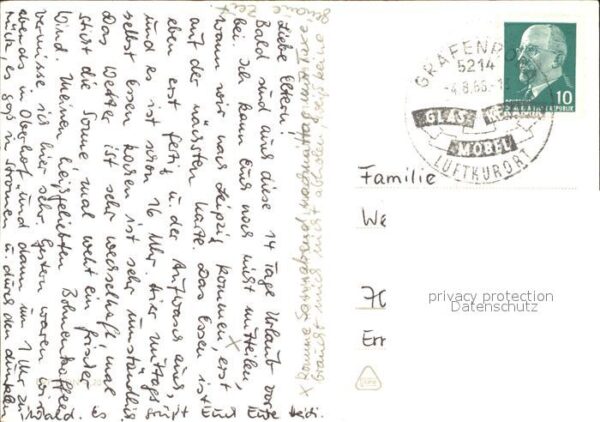 Liebe Eltern!
Bald sind auch diese 14 Tage Urlaub vor-
bei. Ich kann Euch noch nicht mitteilen
wann wir nach Leipzig kommen, erst x
auf der nächsten Karte. Das Essen ist
eben erst fertig u. der Aufwasch aus,
und es ist schon 16 Uhr. Hier mittags
selbst Essen kochen ist sehr umständlich.
Das Wetter ist sehr wechselhaft, mal
sticht die Sonne mal weht ein frischer
Wind. Meinen heißgeliebten Bohnenkaffee
vermisse ich hier sehr. Gestern waren wir
abends in Oberhof und dann um 1 Uhr zu-
rück, es goß in Strömen u. durch den dunklen
Wald. Es grüßt Euch Eure Heidi.
x komme Sonnabend, nachmittag
braucht mich nicht abholen, weiß keine
genaue Zeit
GRÄFENRODA
5214
-4.8.65.-1
GLAS KERAMIK
MÖBEL
LUFTKURORT
10
Familie
We
H
Err
privacy protection
Datenschutz